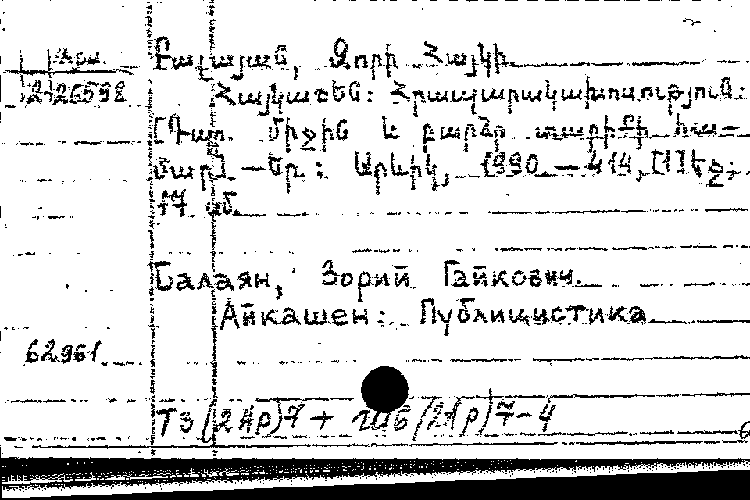 Արմ.
2-26598
Բալայան, Զորի Հայկի.
Հայկաշեն: Հրապարակախոսություն:
[Դպր. միջին և բարձր տարիքի հա-
մար]. — Եր.: Արևիկ, 1990. — 414, [1] էջ;
17 սմ.
Балаян, Зорий Гайкович.
Айкашен: Публицистика.
62961.
Т3(2Ар)7 + (2Ар)7-4